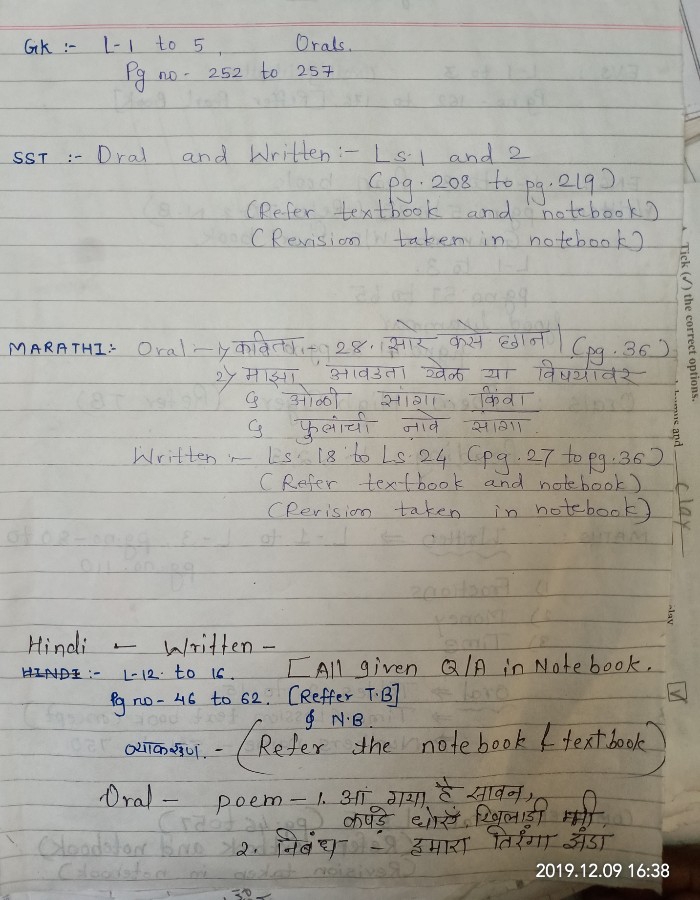 GK :- L-1 to 5, Orals.
Pg no - 252 to 257
SST :- Oral and Written :- Ls.1 and 2
(pg. 208 to pg. 219)
(Refer textbook and notebook)
(Revision taken in notebook)
MARATHI:- Oral - 1) कविता - 28. मोर कसे छान (pg. 36)
2) माझा आवडता खेळ या विषयावर
५ ओळी सांगा किंवा
५ फुलांची नावे सांगा.
Written :- Ls. 18 to Ls. 24 (pg. 27 to pg. 36)
(Refer textbook and notebook)
(Revision taken in notebook)
Hindi - Written -
HINDI :- L-12. to 16. [All given Q/A in Notebook.
Pg no - 46 to 62. [Reffer T.B]
& N.B
व्याकरण. - (Refer the notebook & textbook)
Oral - poem - 1. आ गया है सावन,
कपड़े खिलाड़ी
2. निबंध - हमारा तिरंगा झंडा
Tick (✓) the correct options.
and
Clay
2019.12.09 16:38